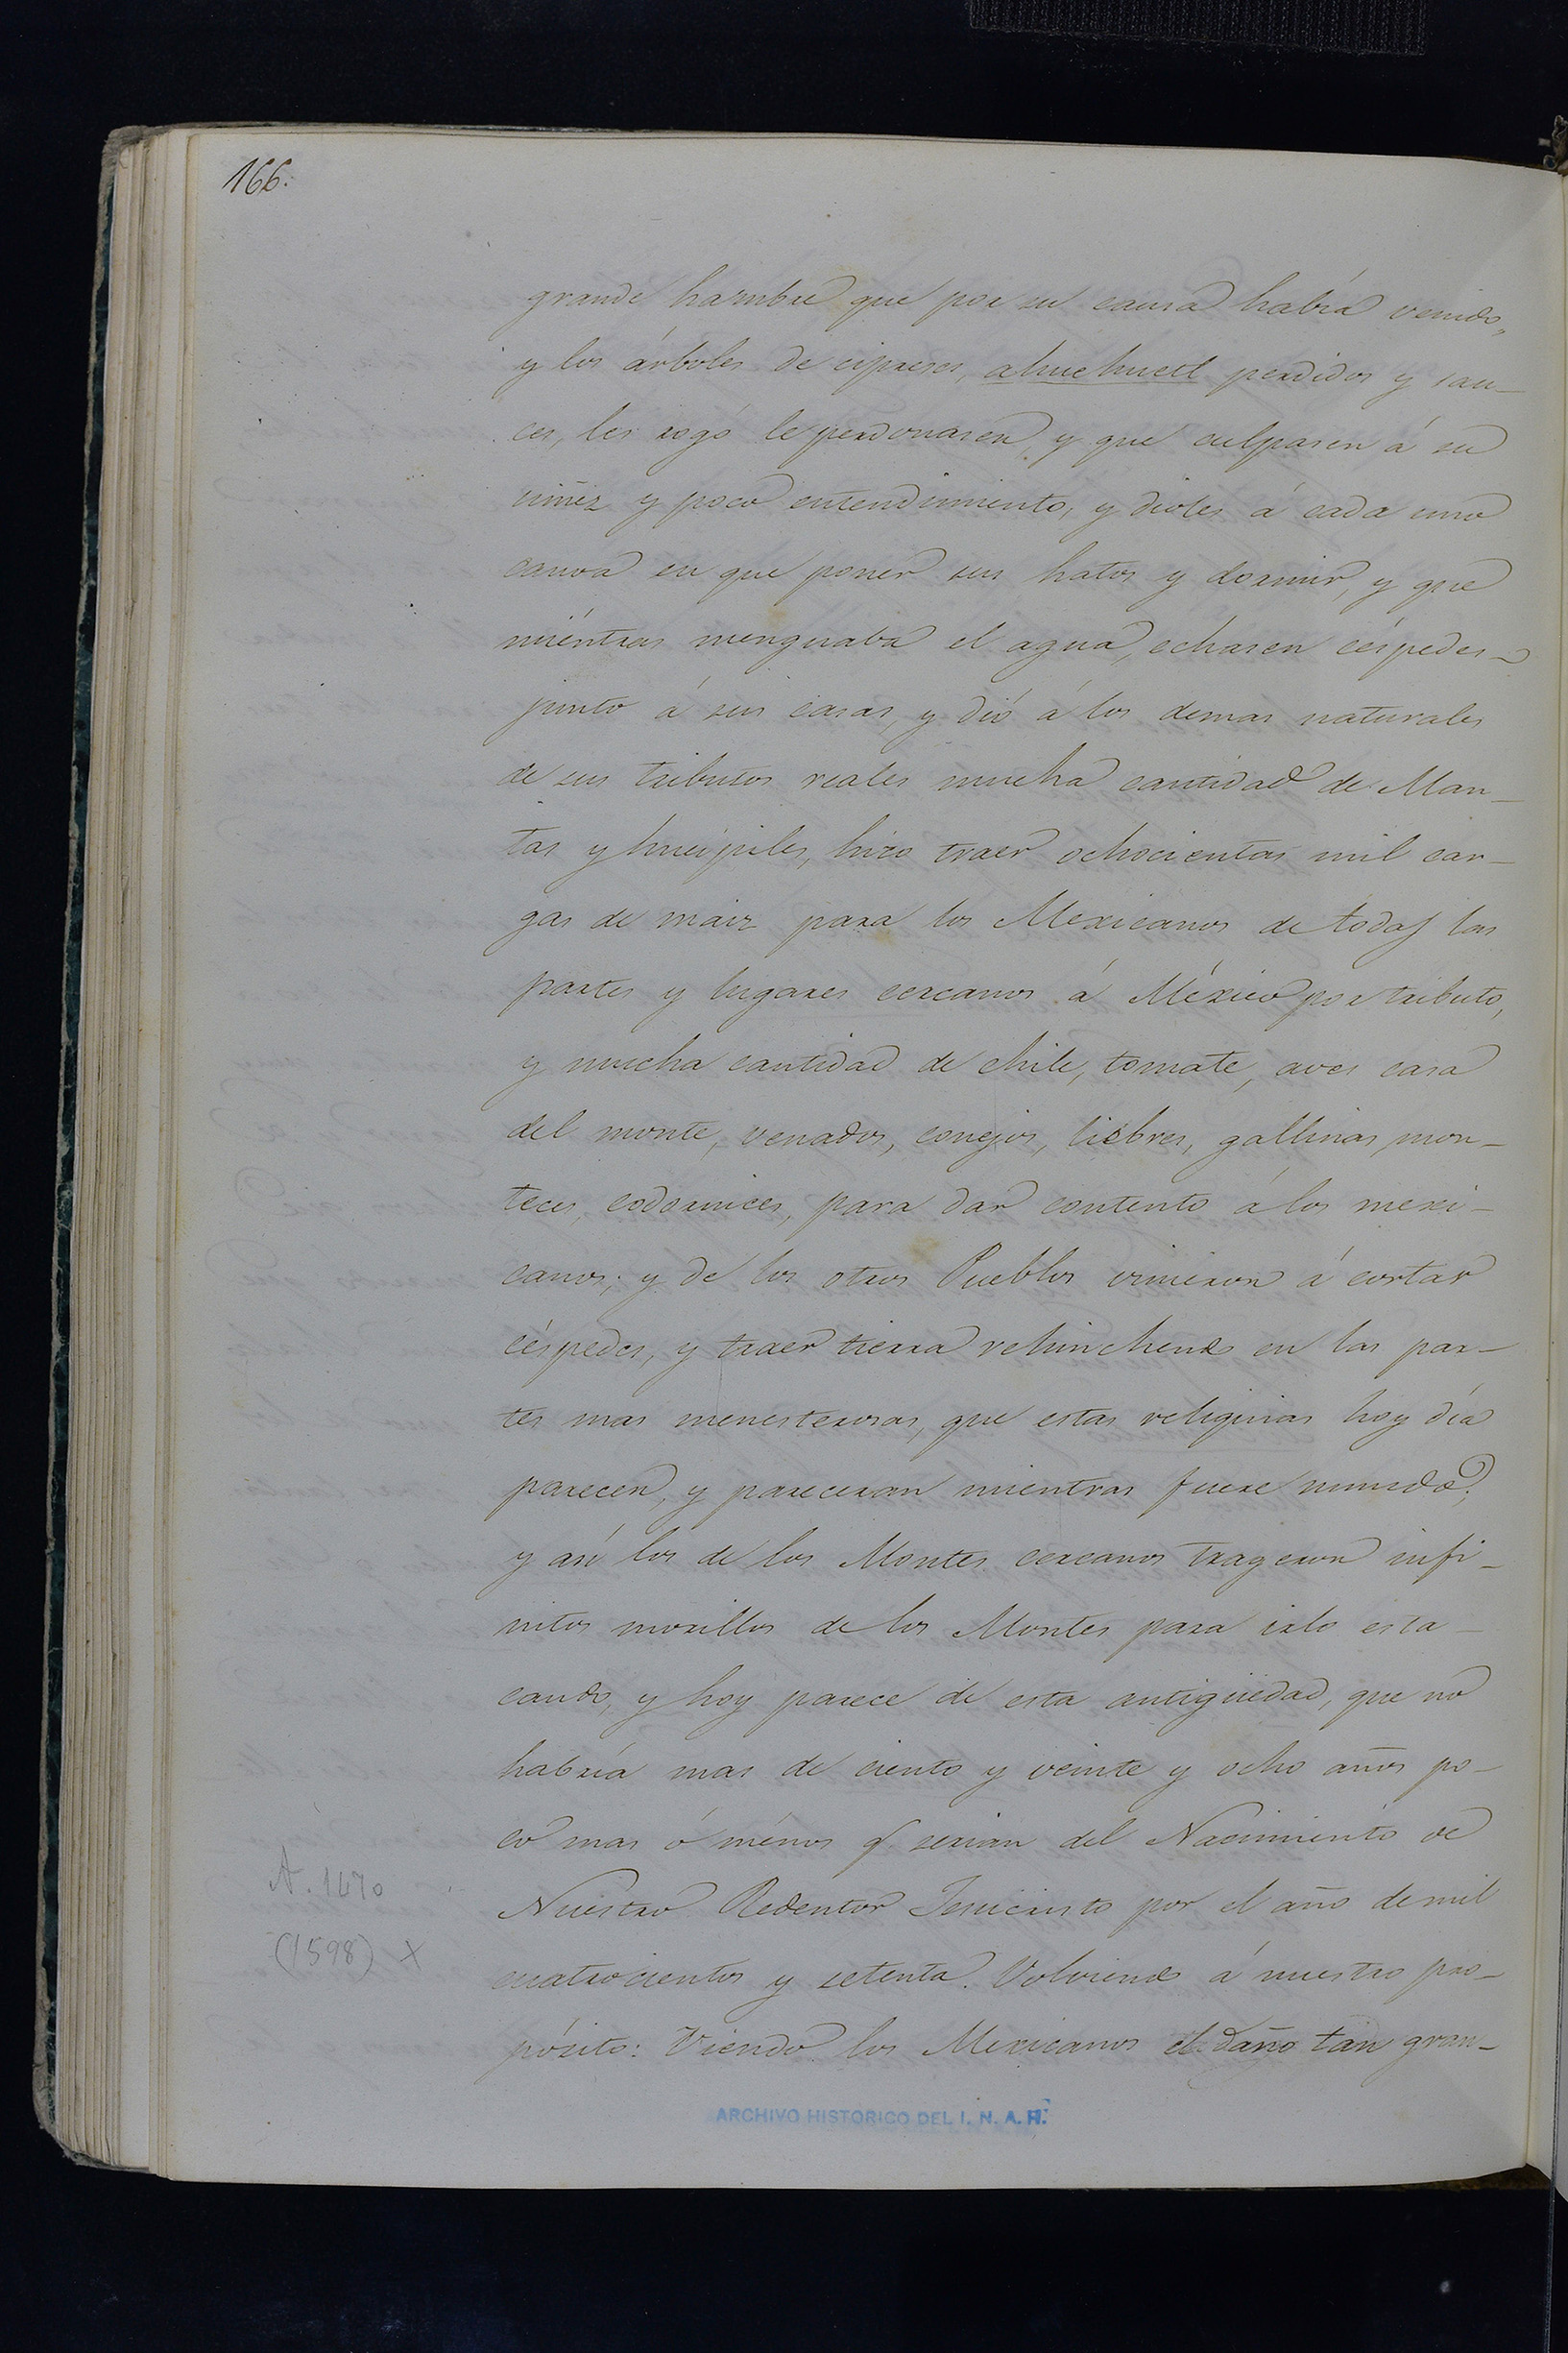 166.
grande hambre que por su causa había venido,
y los árboles de cipreses, ahuehuetl perdidos y sau-
ces, les rogó le perdonasen, y que culpasen á su
niñez y poco entendimiento, y dioles á cada uno
canoa en que poner sus hatos y dormir, y que
miéntras menguaba el agua, echasen céspedes
junto á sus casas, y dió á los demas naturales
de sus tributos reales mucha cantidad de Man-
tas y hueipiles, hizo traer ochocientas mil car-
gas de maiz para los Mexicanos de todas las
partes y lugares cercanos á México por tributo,
y mucha cantidad de chile, tomate, aves casa
del monte, venados, conejos, liebres, gallinas mon-
teces, codornices, para dar contento á los mexi-
canos; y de los otros Pueblos vinieron á cortar
céspedes, y traer tierra rehinchendo en las par-
tes mas menesterosas, que estas reliquias hoy día
parecen, y pareceran mientras fuere mundo;
y así los de los Montes cercanos trageron infi-
nitos morillos de los Montes para irlo esta-
cando, y hoy parece de esta antigüedad, que no
habría mas de ciento y veinte y ocho años po-
co mas ó ménos q. serian del Nacimiento de
A. 1470
Nuestro Redentor Jesucristo por el año de mil
(1598) X
cuatrocientos y setenta. Volviendo á nuestro pro-
pósito: Viendo los Mexicanos el daño tan gran-
ARCHIVO HISTORICO DEL I. N. A. H.